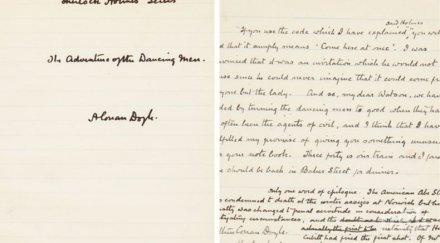 Sherlock Holmes Series
The Adventure of the Dancing Men.
A Conan Doyle.
said Holmes
"If you use the code which I have explained," you wi
d that it simply means 'Come here at once'. I was
vinced that it was an invitation which he would not
use since he could never imagine that it could come fr
yone but the lady. And so, my dear Watson, we hav
ded by turning the dancing men to good when they ha
often been the agents of evil, and I think that I have
filled my promise of giving you something unusua
your note book. Three forty is our train and I fan
e should be back in Baker Street for dinner.
only one word of epilogue. The American Abe Sl
s condemned to death at the winter assizes at Norwich but hi
alty was changed to penal servitude in consideration of
tigating circumstances, and the
certainty that H
Cubitt had fired the first shot. Of M
Arthur Conan Doyle.